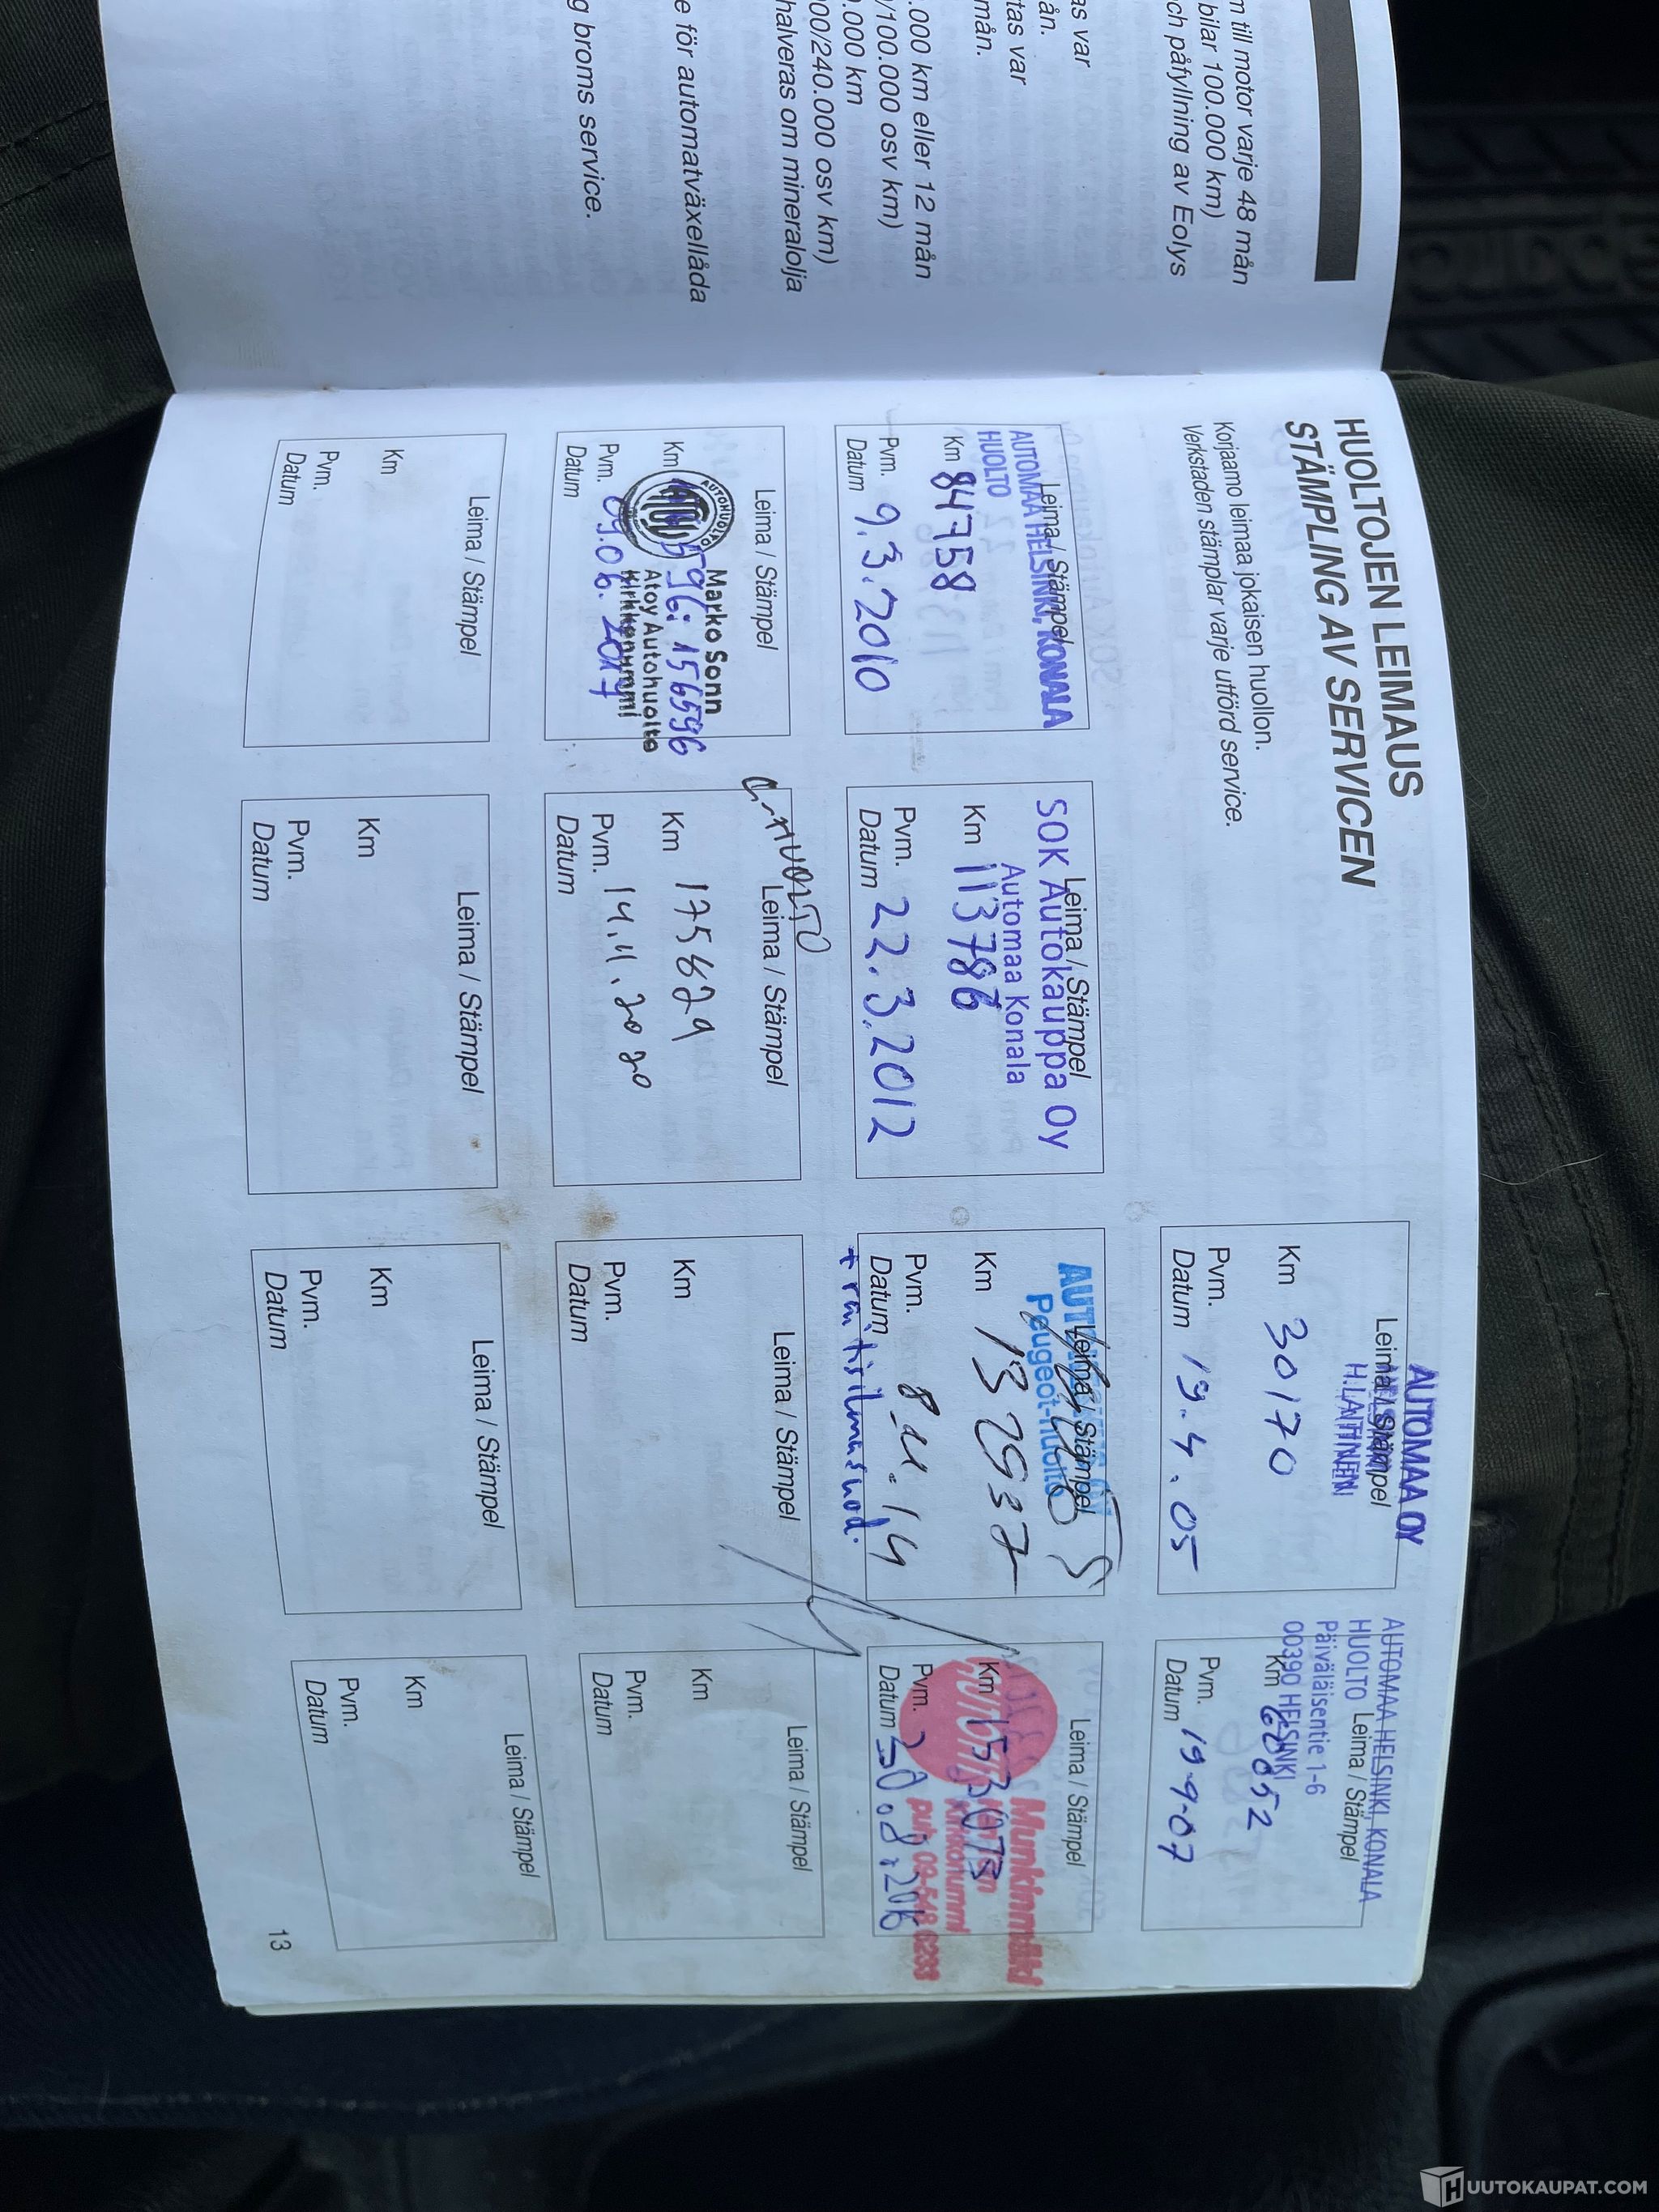 m till motor varje 48 mån
bilar 100.000 km)
ch påfyllning av Eolys
as var
ån.
tas var
mån.
.000 km eller 12 mån
/100.000 osv km)
.000 km
00/240.000 osv km)
halveras om mineralolja
e för automatväxellåda
g broms service.
HUOLTOJEN LEIMAUS
STÄMPLING AV SERVICEN
Korjaamo leimaa jokaisen huollon.
Verkstaden stämplar varje utförd service.
AUTOMAA OY
Leima / Stämpel
H.LAITINEN
Km 30170
Pvm.
Datum 19.4.05
AUTOMAA HELSINKI, KONALA
HUOLTO Leima / Stämpel
Päiväläisentie 1-6
00390 HELSINKI
Km
Pvm.
Datum 19-9-07
Leima / Stämpel
AUTOMAA HELSINKI, KONALA
HUOLTO
Km 84758
Pvm. 9.3.2010
Datum
Leima / Stämpel
SOK Autokauppa Oy
Automaa Konala
Km 113786
Pvm. 22.3.2012
Datum
Leima / Stämpel
Peugeot-huolto
Km 137937
Pvm.
Datum 8.11.14
+ raitisilmasuod.
Leima / Stämpel
Munkinmäki
Kirkkonummi
Km 153073
Pvm. 30.08.2016
Datum
Leima / Stämpel
AUTOHUOLTO
Marko Sonn
Atoy Autohuolto
Kirkkonummi
Km 156596
Pvm. 09.06.2017
Datum
Leima / Stämpel
Km 175629
Pvm. 14.11.2020
Datum
Leima / Stämpel
Km
Pvm.
Datum
Leima / Stämpel
Km
Pvm.
Datum
Leima / Stämpel
Km
Pvm.
Datum
Leima / Stämpel
Km
Pvm.
Datum
Leima / Stämpel
Km
Pvm.
Datum
Leima / Stämpel
Km
Pvm.
Datum
13
HUUTOKAUPAT.COM